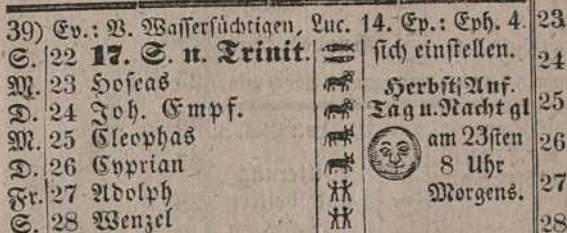 39) Ev.: V. Wassersüchtigen, Luc. 14. Ep.: Eph. 4.
S. 22 17. S. n. Trinit. sich einstellen.
M. 23 Hoseas Herbst Anf.
D. 24 Joh. Empf. Tag u. Nacht gl
M. 25 Cleophas am 23sten
D. 26 Cyprian 8 Uhr
Fr. 27 Adolph Morgens.
S. 28 Wenzel
23
24
25
26
27
28